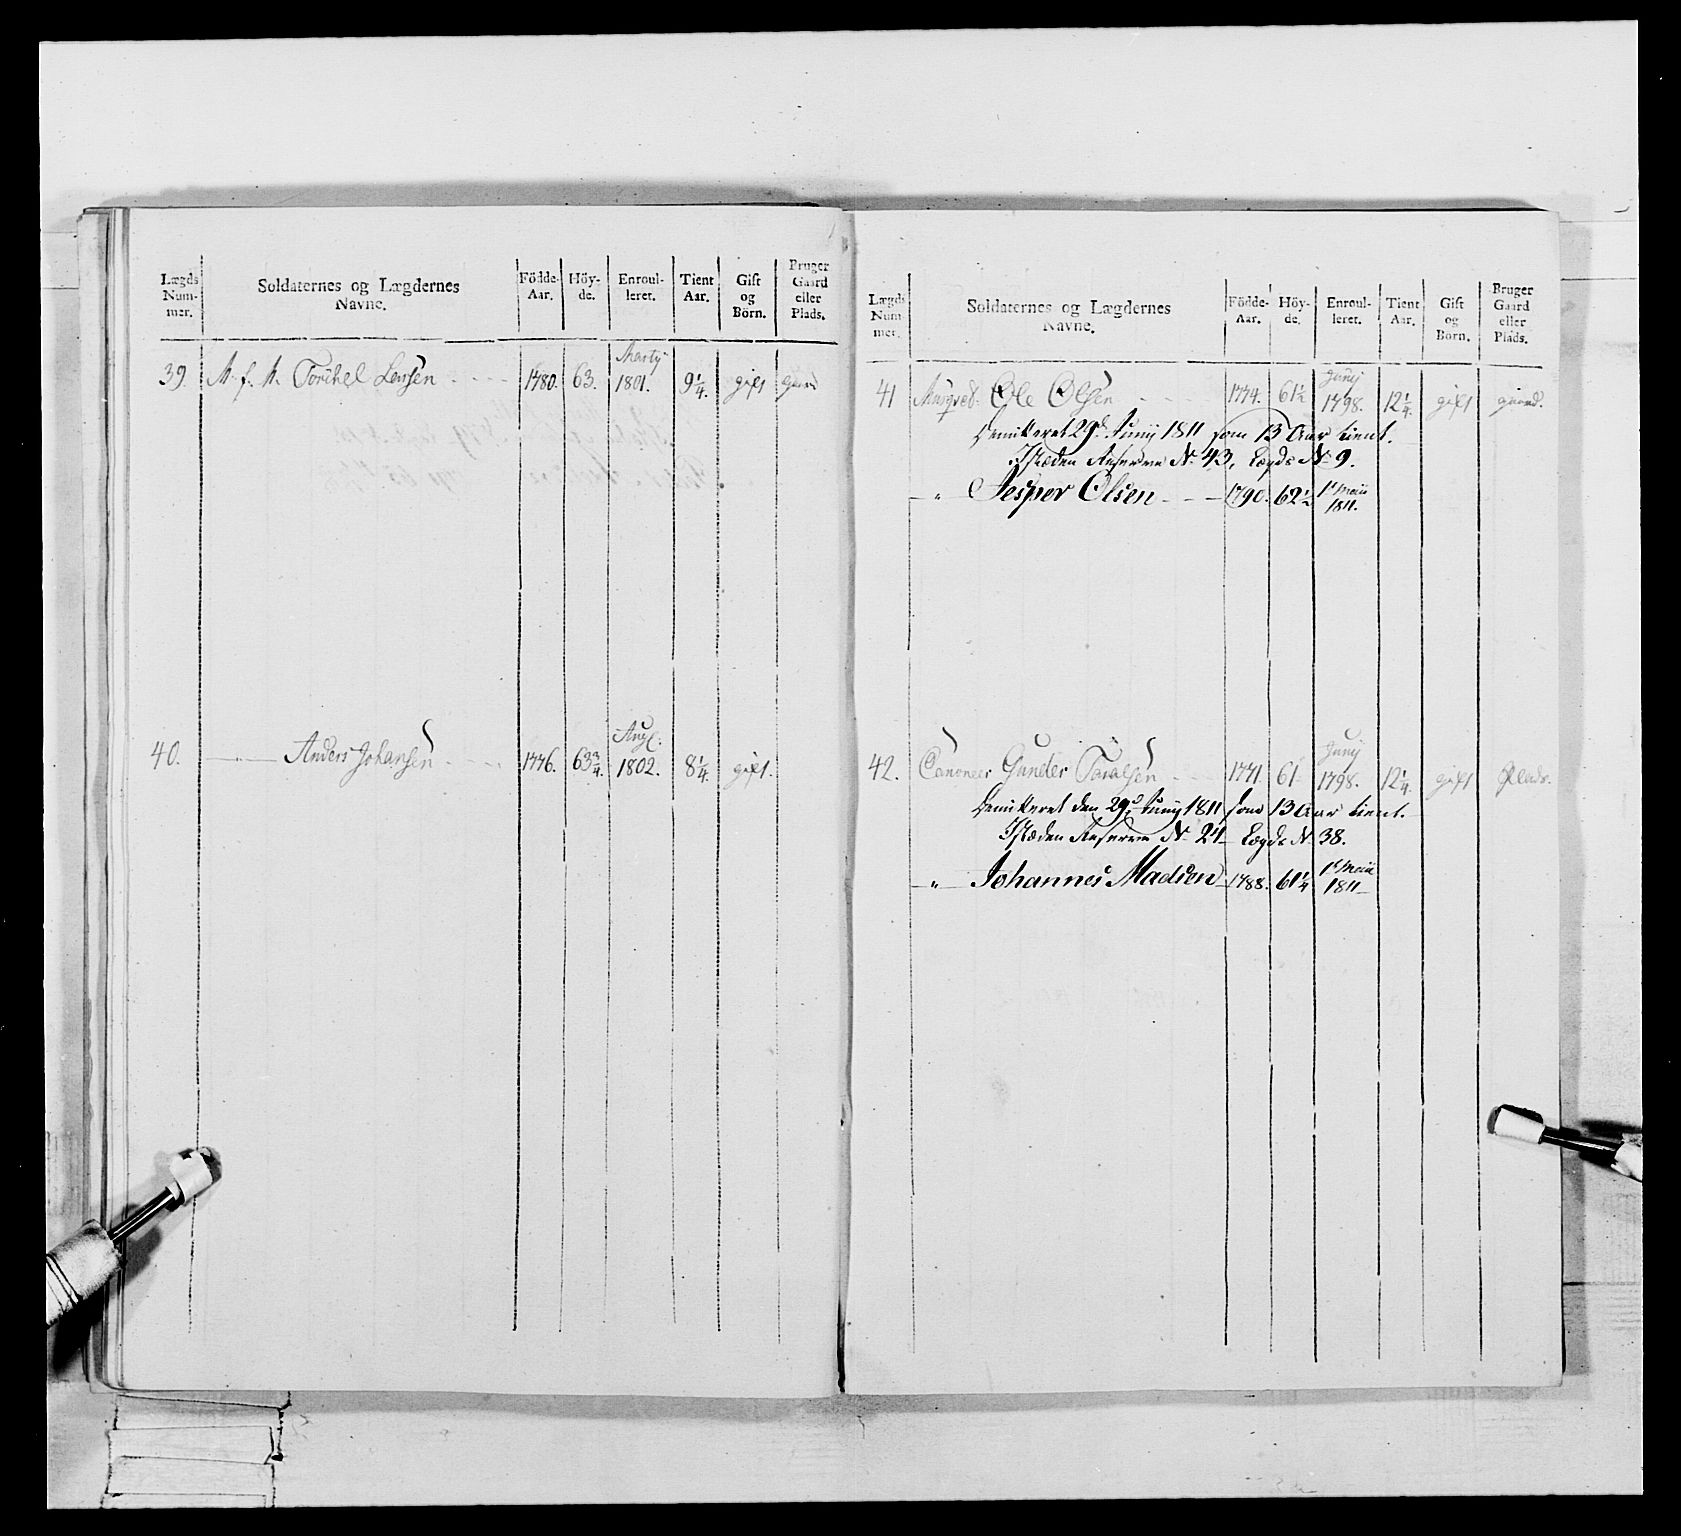 Lægds Num- mer.
Soldaternes og Lægdernes Navne.
Födde- Aar.
Höy- de.
Enroul- leret.
Tient Aar.
Gift og Börn.
Bruger Gaard eller Plads.
39. M. f. M. Torchel Larsen 1780. 63. Marty 1801. 9 1/4. gift gaard
40. Anders Johansen 1776. 63 3/4. Aug. 1802. 8 1/4. gift.
Lægds Num- mer.
Soldaternes og Lægdernes Navne.
Födde- Aar.
Höy- de.
Enroul- leret.
Tient Aar.
Gift og Born.
Bruger Gaard eller Plads.
41 Musqved. Ole Olsen 1774. 61 1/2 Junij 1798. 12 1/4. gift gaard.
Demitteret 29d Junij 1811 som 13 Aar tient.
I Stæden Reserve No 43, Lægds No 9.
" Jesper Olsen 1790. 62 1/2 1t Maii 1811.
42. Canoneer Gunder Taralsen 1771. 61. Junij 1798. 12 1/4. gift Plads.
Demitteret den 29d Junij 1811 som 13 Aar tient.
I Stæden Reserve No 24 Lægds No 38.
" Johannes Madsen 1788. 61 1/4 1t Maii 1811